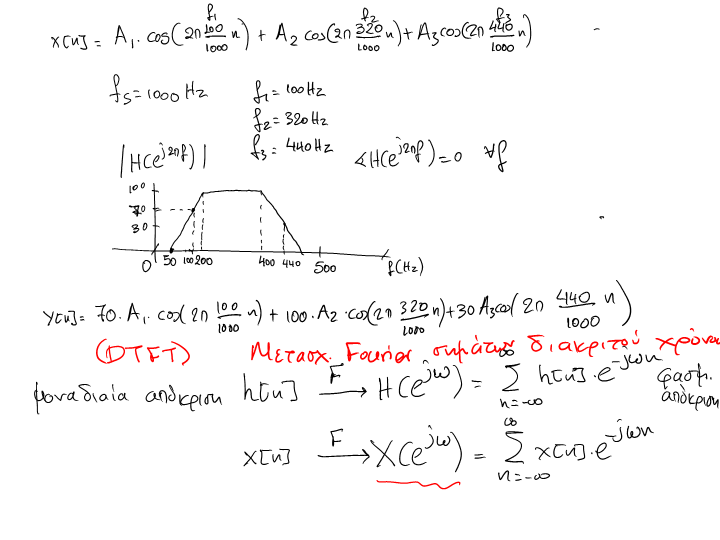 f₁ f₂ f₃
x[n] = A₁·cos(2π 100/1000 n) + A₂ cos(2π 320/1000 n) + A₃cos(2π 440/1000 n)
fs = 1000 Hz f₁ = 100Hz
f₂ = 320Hz
f₃ = 440Hz
|H(e^{j2πf})| ∢H(e^{j2πf}) = 0 ∀f
100
70
30
0 50 100 200 400 440 500 f(Hz)
y[n] = 70·A₁·cos(2π 100/1000 n) + 100·A₂·cos(2π 320/1000 n) + 30 A₃cos(2π 440/1000 n)
(DTFT) Μετασχ. Fourier σημάτων διακριτού χρόνου
μοναδιαία απόκριση h[n] F→ H(e^{jω}) = Σ_{n=-∞}^{∞} h[n]·e^{-jωn} φασμ. απόκριση
x[n] F→ X(e^{jω}) = Σ_{n=-∞}^{∞} x[n]·e^{-jωn}